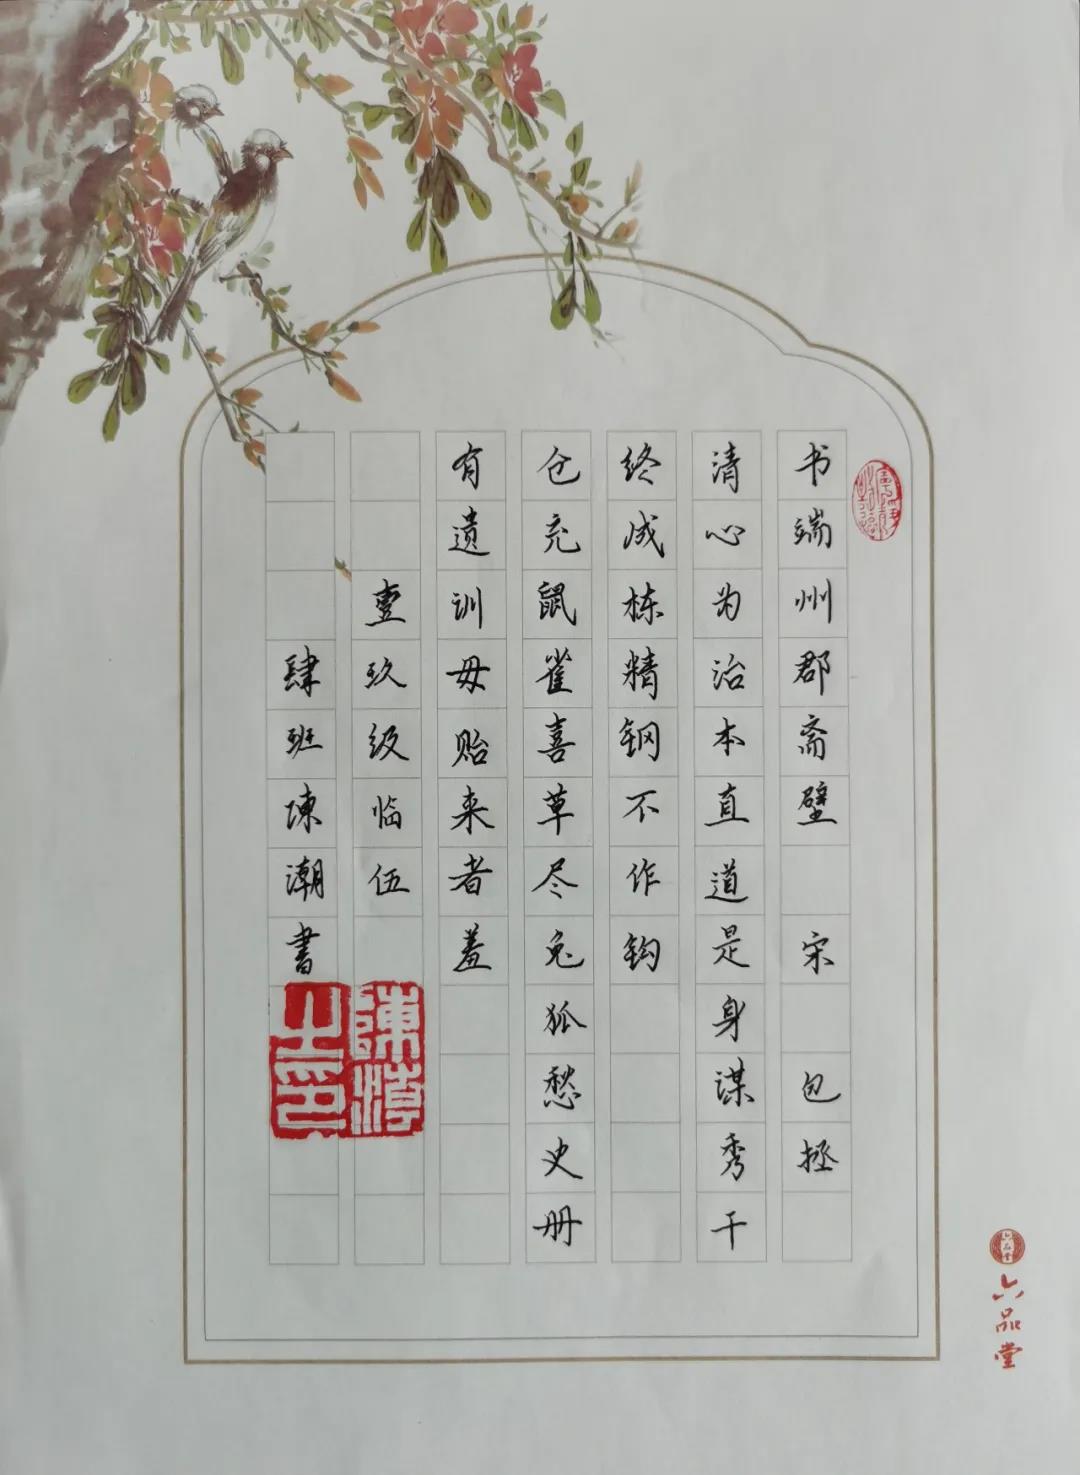 书端州郡斋壁 宋 包拯
清心为治本直道是身谋秀干
终成栋精钢不作钩
仓充鼠雀喜草尽兔狐愁史册
有遗训毋贻来者羞
壹玖级临伍
肆班陳潮書
陳潮
之印
六品堂
六品堂